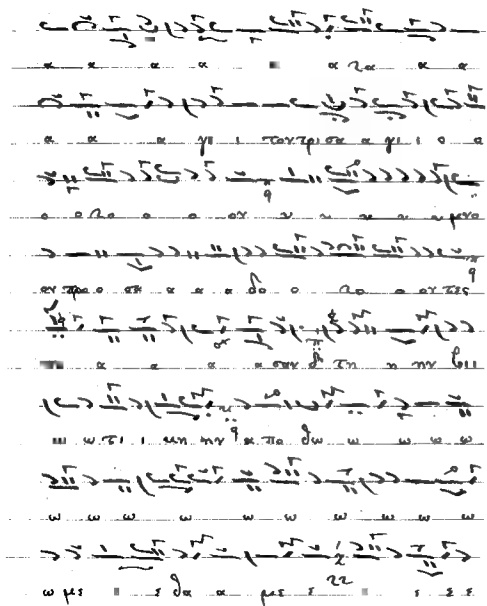 α α α α α α α
α α α γι ι τον τρι σα α γι ι ο ο
ο ο ο ο ον υ υ υ υ υ μνο
ον προ ο σα α α δο ο ο ον τες
α α α α σαν τη η ην βι ι
ω τι ι κη ην α πο θω ω ω ω ω
ω ω ω ω ω ω ω ω ω
ω με ε θα α με ε ε ε ε